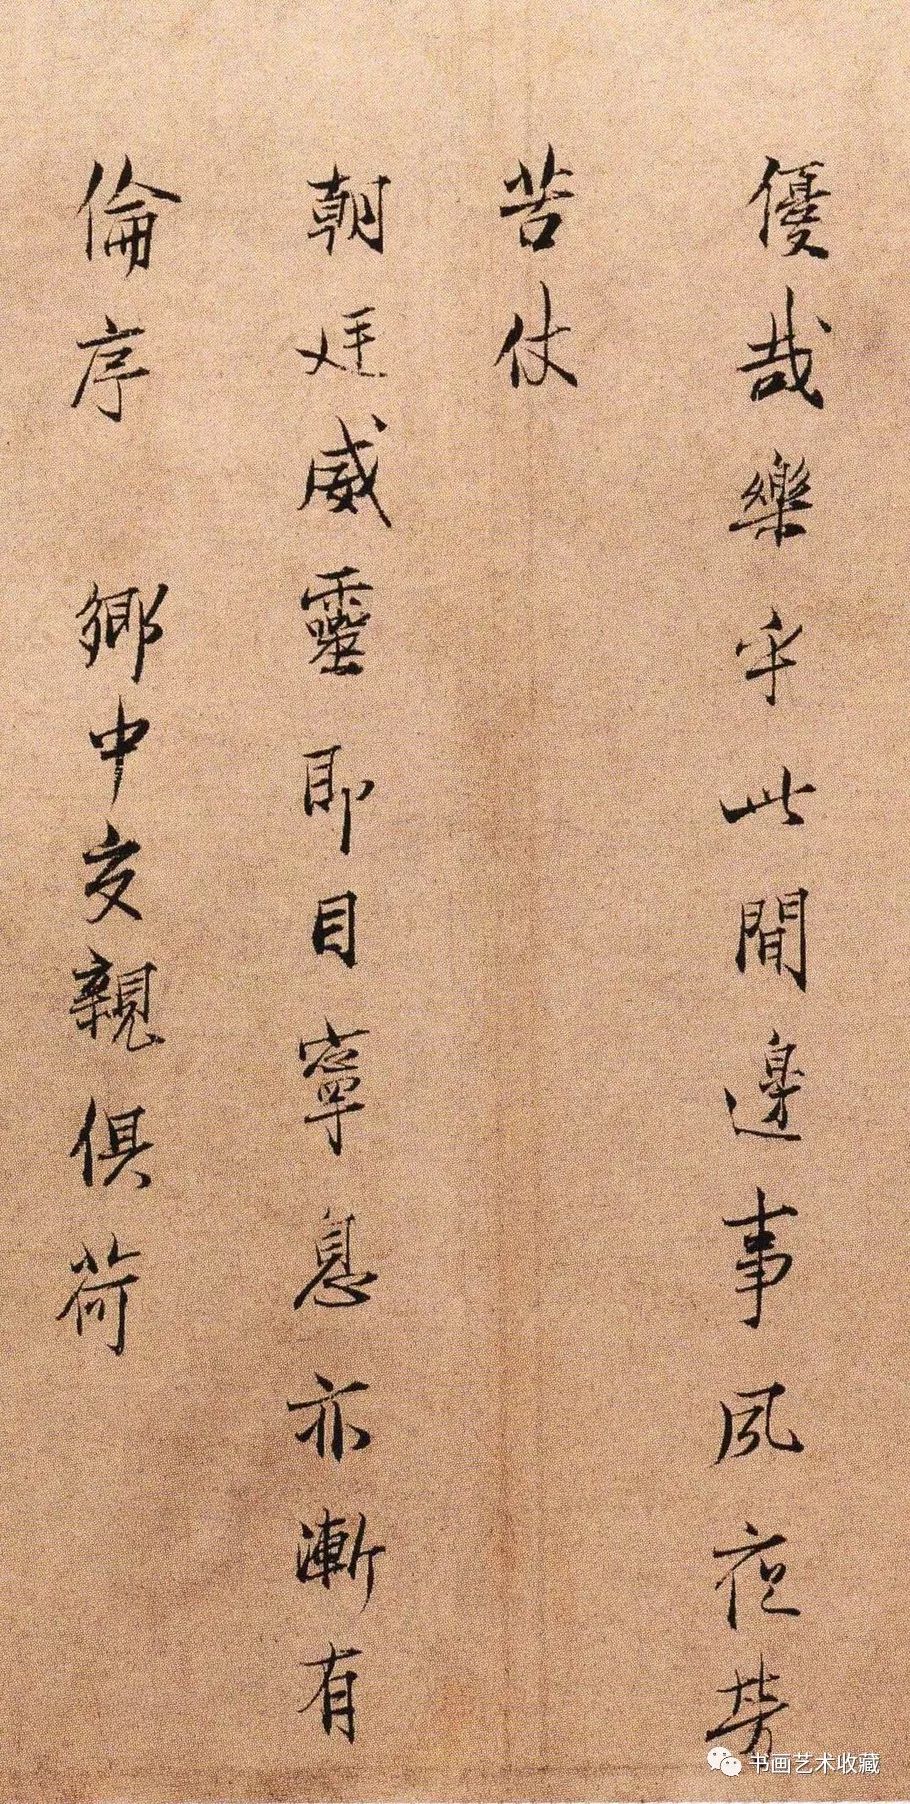 優哉樂乎此間邊事夙夜勞
苦仗
朝廷威靈即目寧息亦漸有
倫序 鄉中交親俱荷
书画艺术收藏